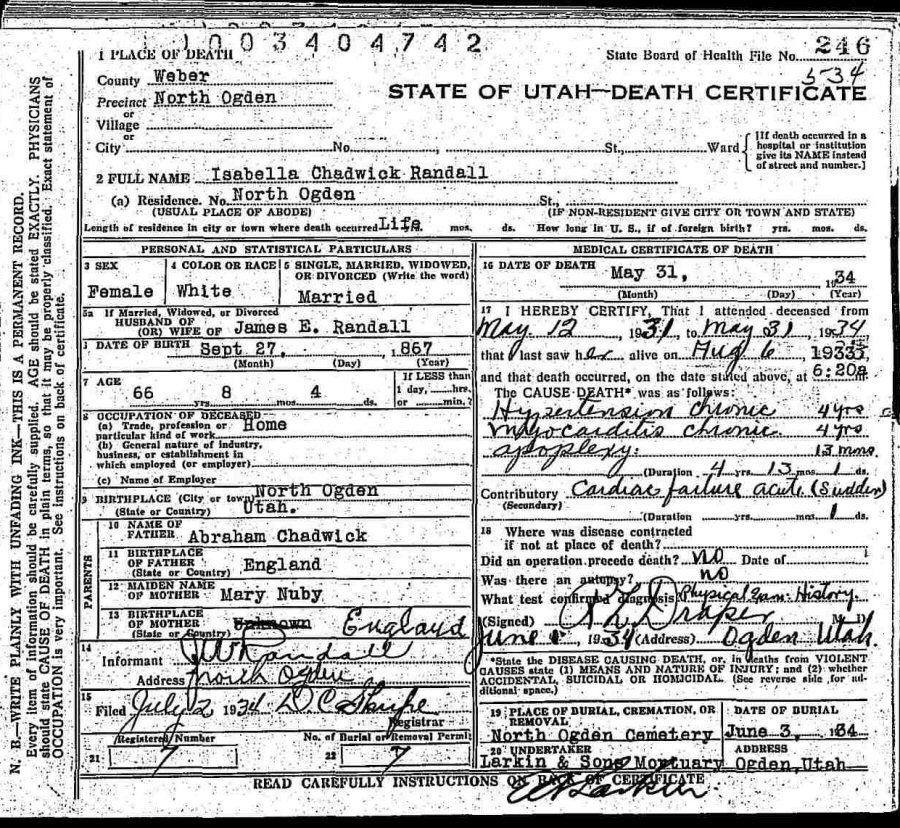 1003404742
1 PLACE OF DEATH
State Board of Health File No. 246
County Weber
534
Precinct North Ogden
STATE OF UTAH—DEATH CERTIFICATE
or
Village
or
City No. , St., Ward
[If death occurred in a hospital or institution give its NAME instead of street and number.]
2 FULL NAME Isabella Chadwick Randall
(a) Residence. No. North Ogden St.,
(USUAL PLACE OF ABODE) (IF NON-RESIDENT GIVE CITY OR TOWN AND STATE)
Length of residence in city or town where death occurred Life. mos. ds. How long in U. S., if of foreign birth? yrs. mos. ds.
PERSONAL AND STATISTICAL PARTICULARS
3 SEX
Female
4 COLOR OR RACE
White
5 SINGLE, MARRIED, WIDOWED, OR DIVORCED (Write the word)
Married
5a If Married, Widowed, or Divorced
HUSBAND OF
(OR) WIFE OF James E. Randall
DATE OF BIRTH Sept 27, 1867
(Month) (Day) (Year)
7 AGE
66 yrs. 8 mos. 4 ds.
If LESS than
1 day, hrs.
or min.?
8 OCCUPATION OF DECEASED
(a) Trade, profession or Home
particular kind of work
(b) General nature of industry,
business, or establishment in
which employed (or employer)
(c) Name of Employer
9 BIRTHPLACE (City or town) North Ogden
(State or Country) Utah.
PARENTS
10 NAME OF
FATHER Abraham Chadwick
11 BIRTHPLACE
OF FATHER England
(State or Country)
12 MAIDEN NAME
OF MOTHER Mary Nuby
13 BIRTHPLACE
OF MOTHER Unknown England
(State or Country)
14
Informant J W Randall
Address North Ogden
15
Filed July 2 1934 D C Sharpe
Registrar
Registered Number No. of Burial or Removal Permit
21 7 22 7
MEDICAL CERTIFICATE OF DEATH
16 DATE OF DEATH May 31, 1934
(Month) (Day) (Year)
17 I HEREBY CERTIFY, That I attended deceased from
May 12, 1931 to May 31 1934
that I last saw her alive on Aug 6
and that death occurred, on the date stated above, at 6:20a
The CAUSE DEATH* was as follows:
Hypertension chronic 4 yrs
Myocarditis chronic 4 yrs
apoplexy. 13 mos
(Duration 4 yrs. 13 mos. 1 ds.
Contributory Cardiac failure acute (Sudden)
(Secondary)
(Duration yrs. mos. 1 ds.
18 Where was disease contracted
if not at place of death?
Did an operation precede death? no Date of
Was there an autopsy? no
What test confirmed diagnosis Physical exam. History.
(Signed) Draper M. D.
June 1 1934 (Address) Ogden Utah.
*State the DISEASE CAUSING DEATH, or, in deaths from VIOLENT
CAUSES state (1) MEANS AND NATURE OF INJURY; and (2) whether
ACCIDENTAL, SUICIDAL OR HOMICIDAL. (See reverse side for additional space.)
19 PLACE OF BURIAL, CREMATION, OR REMOVAL
North Ogden Cemetery
DATE OF BURIAL
June 3, 1934
20 UNDERTAKER
Larkin & Sons Mortuary
ADDRESS
Ogden, Utah
READ CAREFULLY INSTRUCTIONS ON BACK OF CERTIFICATE
Larkin
N. B.—WRITE PLAINLY WITH UNFADING INK—THIS IS A PERMANENT RECORD.
Every item of information should be carefully supplied. AGE should be stated EXACTLY. PHYSICIANS
should state CAUSE OF DEATH in plain terms, so that it may be properly classified. Exact statement of
OCCUPATION is very important. See instructions on back of certificate.